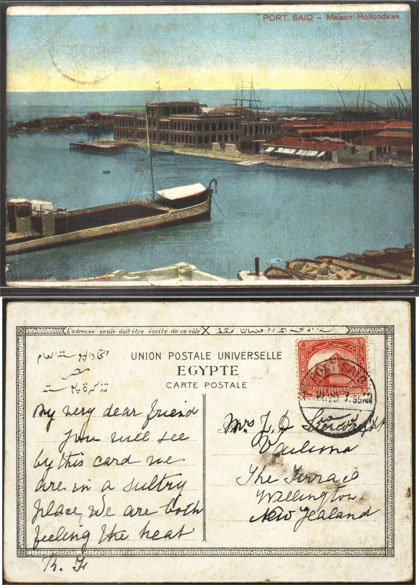 PORT SAID - Maison Hollondaise
L'adresse seule doit être écrite de ce côté
UNION POSTALE UNIVERSELLE
EGYPTE
CARTE POSTALE
PORT SAID
My very dear friend
You will see
by this card we
are in a sultry
place, we are both
feeling the heat
Mrs
The Terrace
Wellington
New Zealand